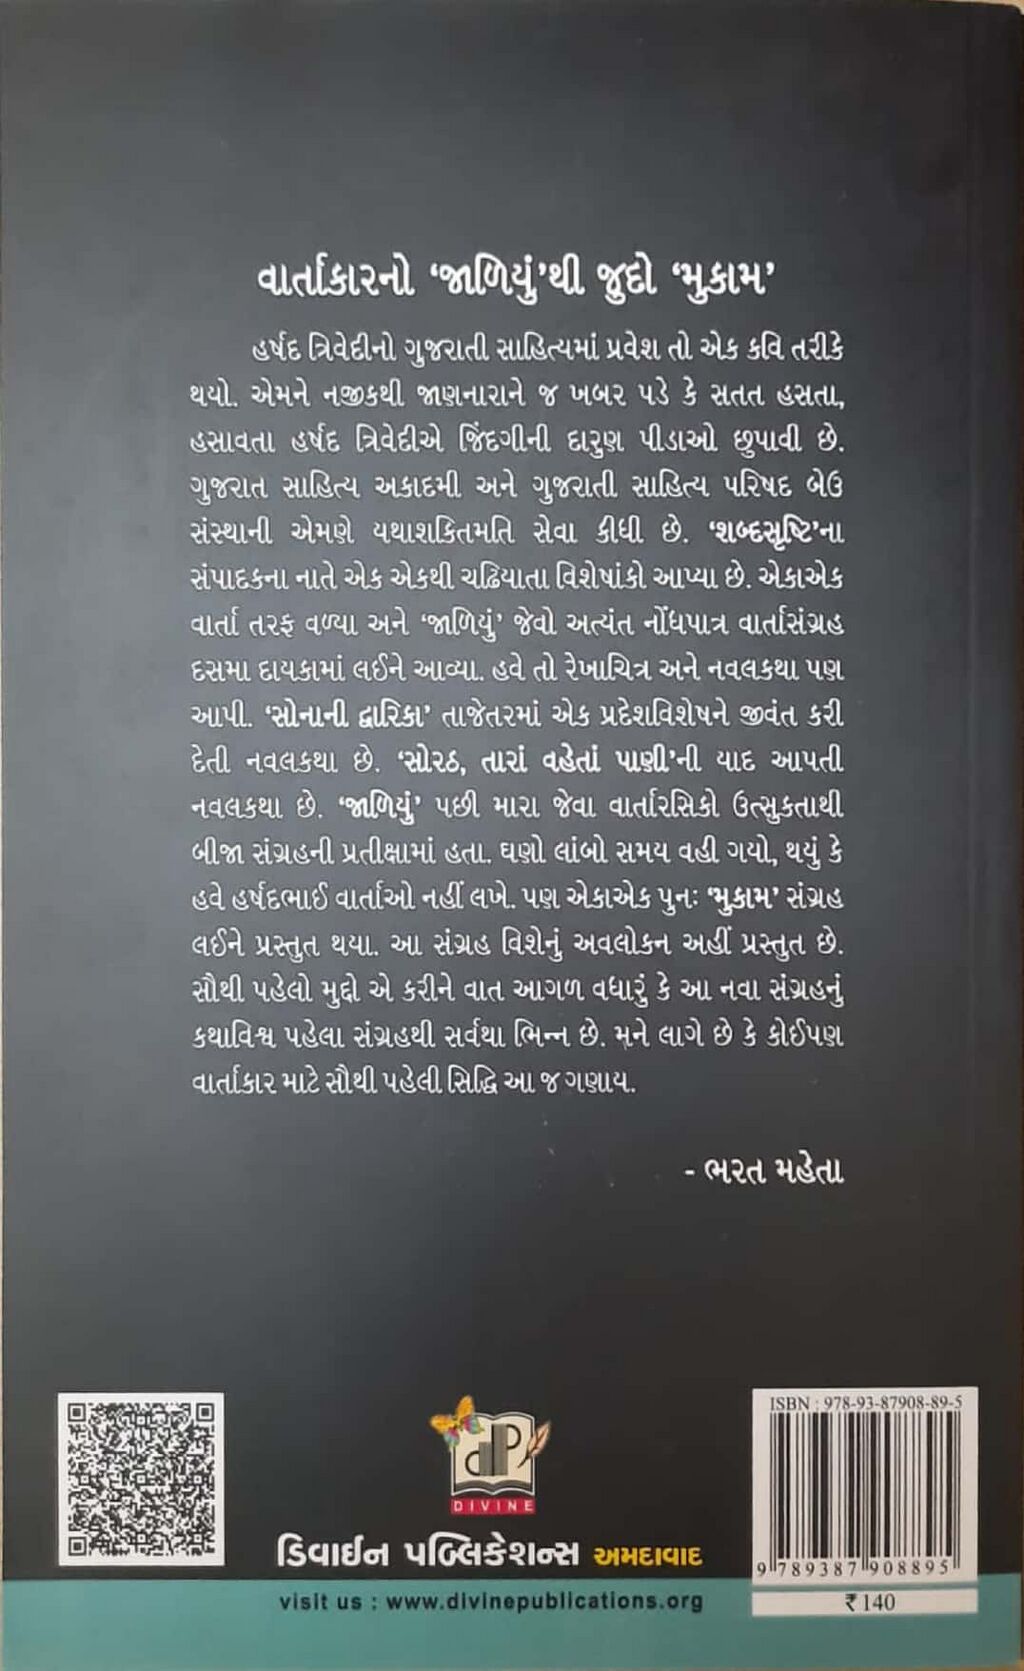 વાર્તાકારનો ‘જાળિયું’થી જુદો ‘મુકામ’
હર્ષદ ત્રિવેદીનો ગુજરાતી સાહિત્યમાં પ્રવેશ તો એક કવિ તરીકે
થયો. એમને નજીકથી જાણનારાને જ ખબર પડે કે સતત હસતા,
હસાવતા હર્ષદ ત્રિવેદીએ જિંદગીની દારુણ પીડાઓ છુપાવી છે.
ગુજરાત સાહિત્ય અકાદમી અને ગુજરાતી સાહિત્ય પરિષદ બેઉ
સંસ્થાની એમણે યથાશક્તિમતિ સેવા કીધી છે. ‘શબ્દસૃષ્ટિ’ના
સંપાદકના નાતે એક એકથી ચઢિયાતા વિશેષાંકો આપ્યા છે. એકાએક
વાર્તા તરફ વળ્યા અને ‘જાળિયું’ જેવો અત્યંત નોંધપાત્ર વાર્તાસંગ્રહ
દસમા દાયકામાં લઈને આવ્યા. હવે તો રેખાચિત્ર અને નવલકથા પણ
આપી. ‘સોનાની દ્વારિકા’ તાજેતરમાં એક પ્રદેશવિશેષને જીવંત કરી
દેતી નવલકથા છે. ‘સોરઠ, તારાં વહેતાં પાણી’ની યાદ આપતી
નવલકથા છે. ‘જાળિયું’ પછી મારા જેવા વાર્તારસિકો ઉત્સુકતાથી
બીજા સંગ્રહની પ્રતીક્ષામાં હતા. ઘણો લાંબો સમય વહી ગયો, થયું કે
હવે હર્ષદભાઈ વાર્તાઓ નહીં લખે. પણ એકાએક પુનઃ ‘મુકામ’ સંગ્રહ
લઈને પ્રસ્તુત થયા. આ સંગ્રહ વિશેનું અવલોકન અહીં પ્રસ્તુત છે.
સૌથી પહેલો મુદ્દો એ કરીને વાત આગળ વધારું કે આ નવા સંગ્રહનું
કથાવિશ્વ પહેલા સંગ્રહથી સર્વથા ભિન્ન છે. મને લાગે છે કે કોઈપણ
વાર્તાકાર માટે સૌથી પહેલી સિદ્ધિ આ જ ગણાય.
- ભરત મહેતા
ISBN : 978-93-87908-89-5
dP
DIVINE
ડિવાઈન પબ્લિકેશન્સ અમદાવાદ
9 789387 908895
visit us : www.divinepublications.org
₹ 140